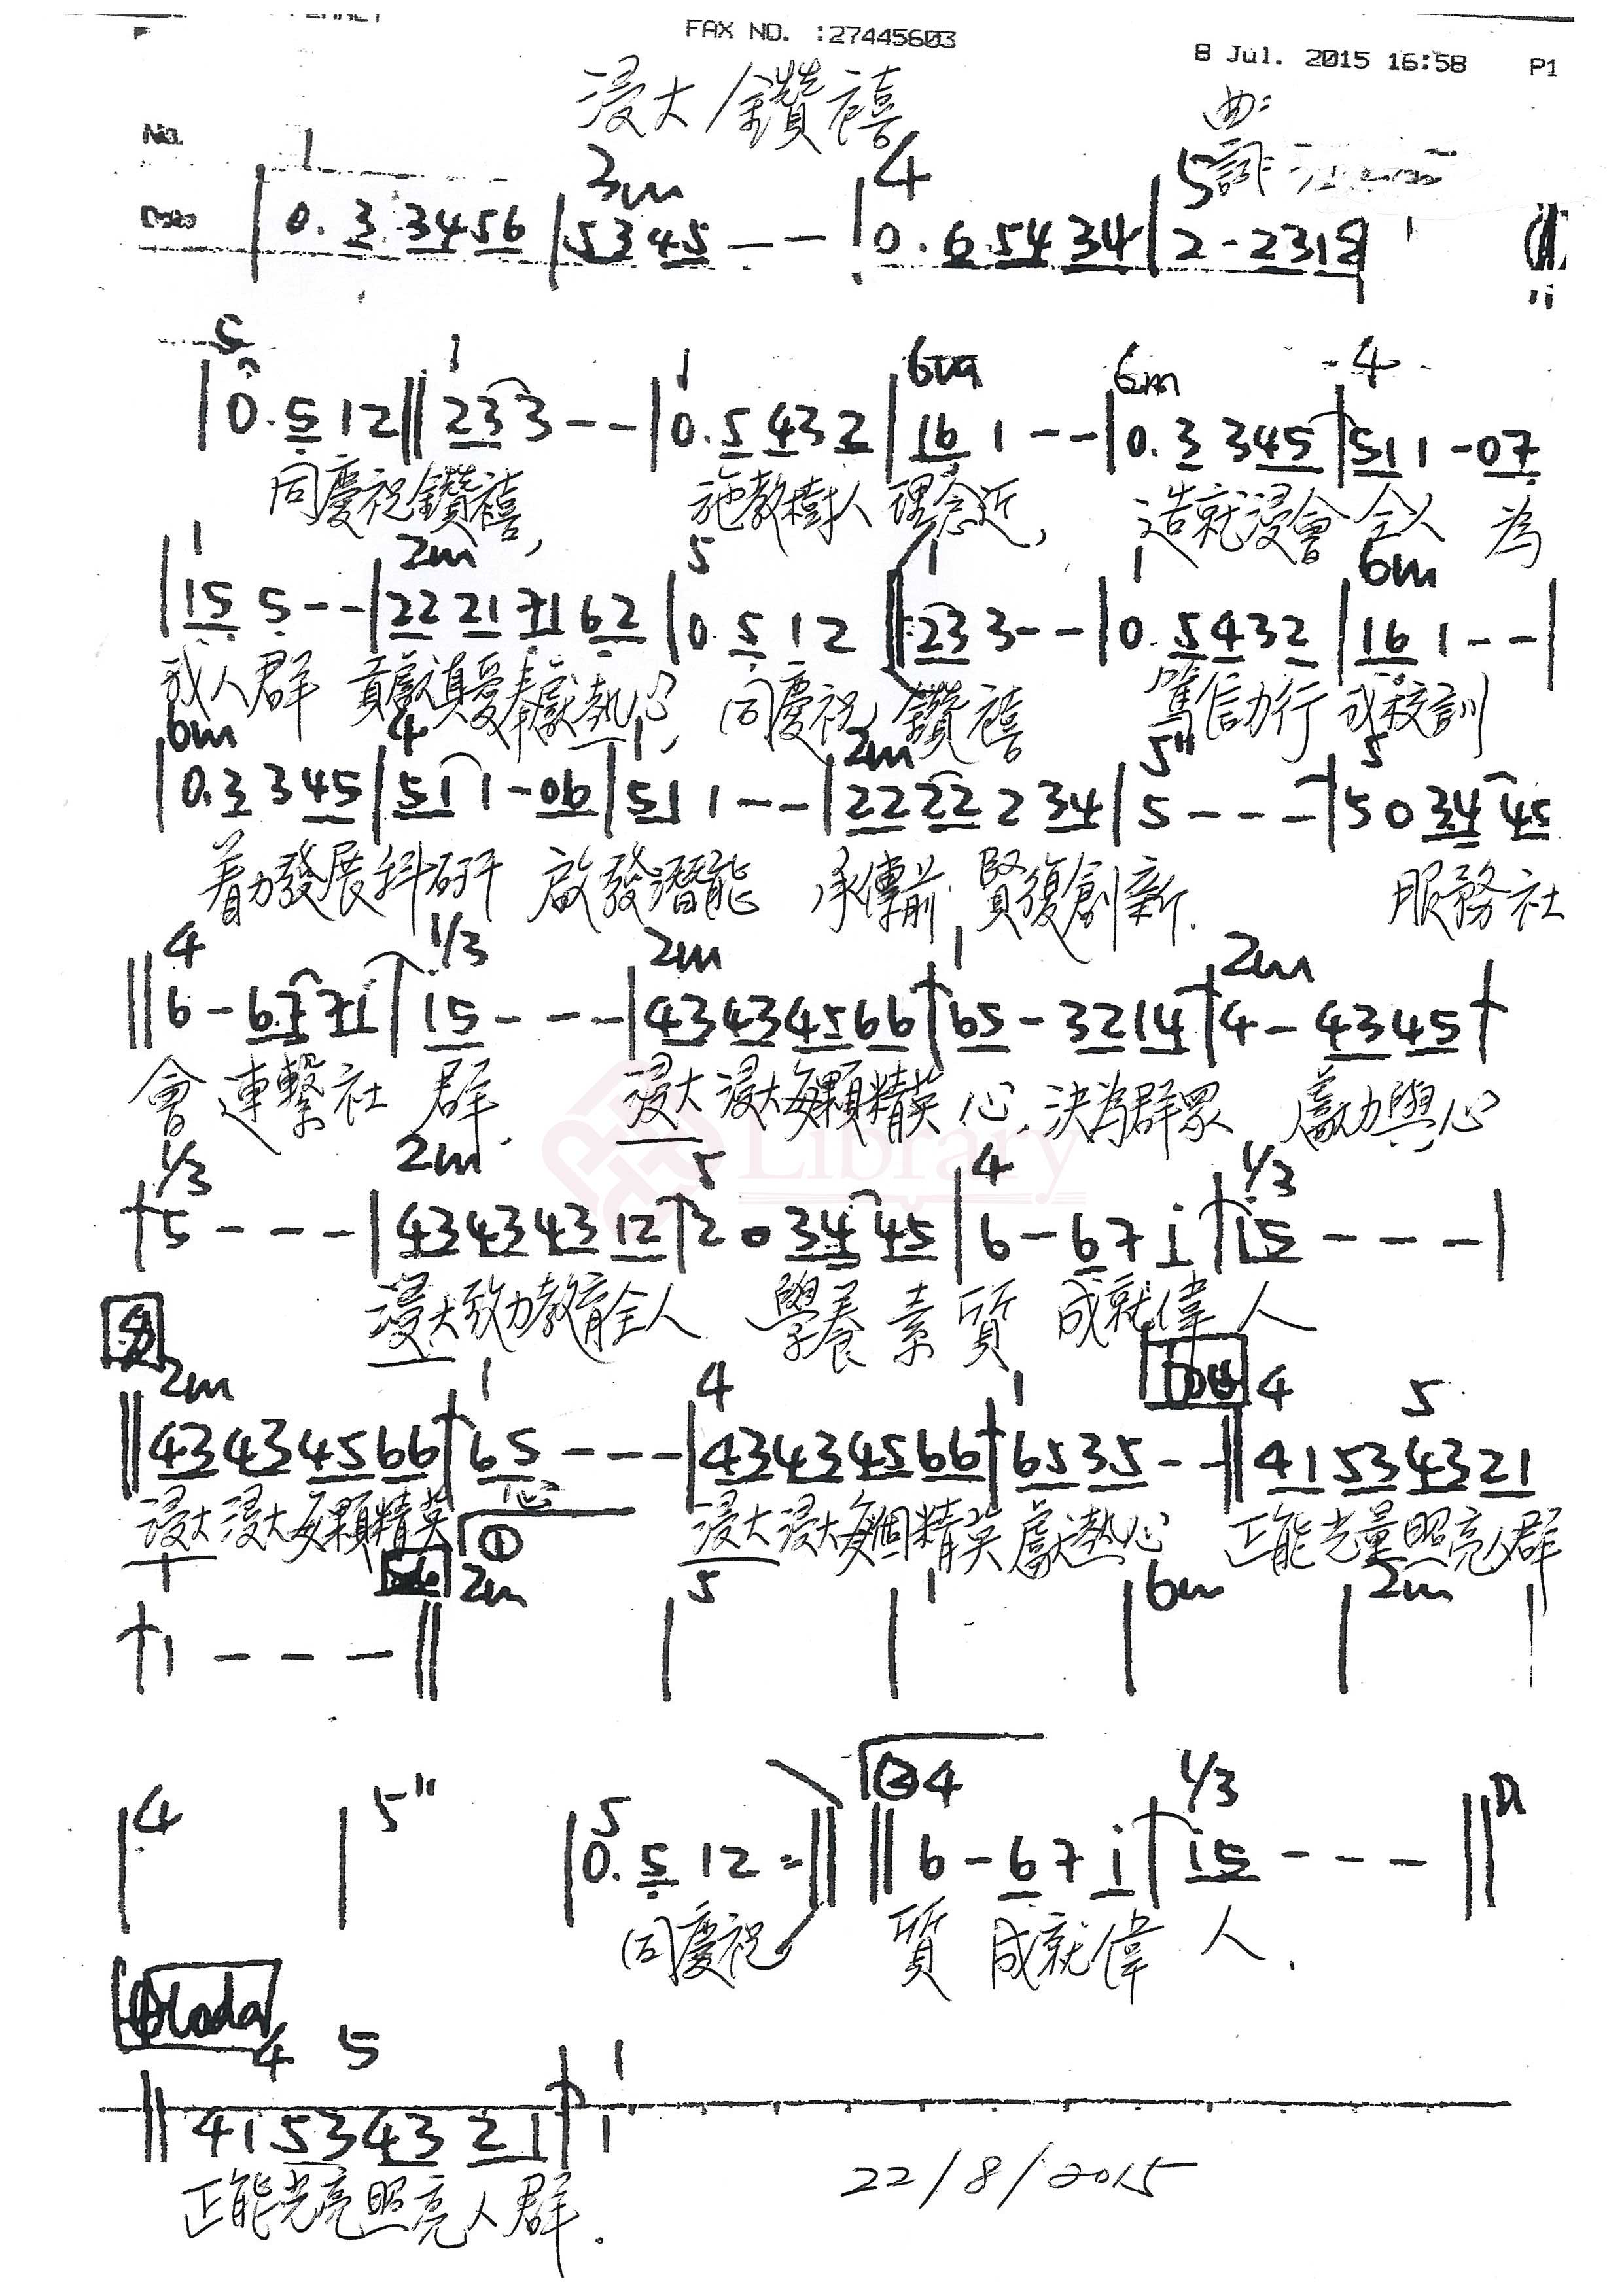 FAX NO. :27445603
8 Jul. 2015 16:58 P1
浸大鑽禧
曲:
詞:
No.
Date
1 3m 4 5
| 0. 3 3456 | 5345 - - | 0. 6 54 34 | 2 - 231
5 1 1 6m 6m 4
| 0. 5 12 || 23 3 - - | 0. 5 43 2 | 16 1 - - | 0. 3 345 | 51 1 - 07
同慶祝鑽禧, 施教樹人理念近, 造就浸會全人 為
1 2m 5 1 1 6m
| 15 5 - - | 22 21 71 62 | 0. 5 12 || 23 3 - - | 0. 5432 | 16 1 - - |
我人群 貢獻真愛奉獻熱心, 同慶祝鑽禧 篤信力行我校訓
6m 4 1 2m 5" 5
| 0. 3 345 | 51 1 - 06 | 51 1 - - | 22 22 2 34 | 5 - - - | 5 0 34 45
着力發展科研 啟發潛能 承傳前賢復創新. 服務社
4 1/3 2m 1 2m
|| 6 - 67 71 | 15 - - - | 43 43 45 66 | 65 - 3214 | 4 - 4345 |
會連繫社群. 浸大浸大每顆精英心, 決為群眾 獻力與心
Library
1/3 2m 5 4 1/3
| 5 - - - | 43 43 43 12 | 2 0 34 45 | 6 - 67 i | i5 - - - |
浸大致力教育全人 學養素質 成就偉人
2m 1 4 1 4 5
|| 43 43 45 66 | 65 - - - | 43 43 45 66 | 65 35 - - || 41 53 43 21
浸大浸大每顆精英心 浸大浸大每個精英獻熱心 正能光量照亮人群
1 ① 2m 5 1 6m 2m
| 1 - - - || | | | |
4 5" 5 ② 4 1/3
| | | 0. 5 12 || || 6 - 67 i | i5 - - - ||
同慶祝 質 成就偉人.
Coda
4 5 1
|| 41 53 43 21 | 1
正能光亮照亮人群.
22/8/2015